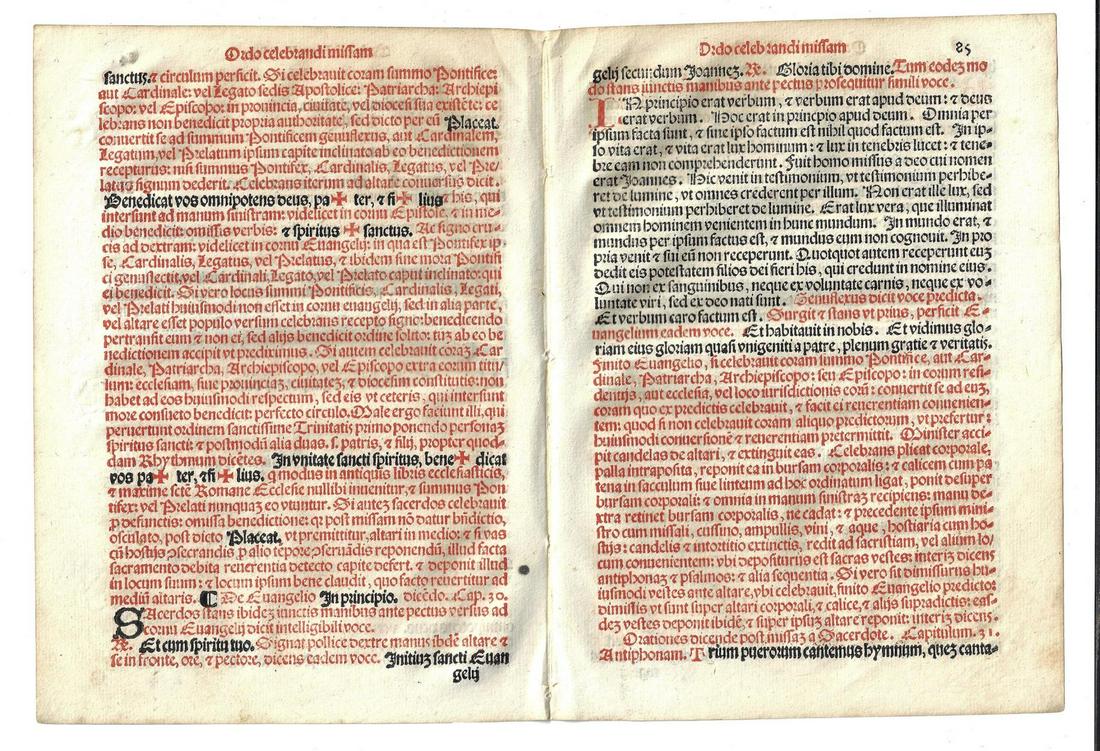 Ordo celebrandi missam
sanctus. ⁊ circulum perficit. Si celebrauit coram summo Pontifice:
aut Cardinale: vel Legato sedis Apostolice: Patriarcha: Archiepi
scopo: vel Episcopo: in prouincia, ciuitate, vel diocesi sua existẽte: ce
lebrans non benedicit propria authoritate, sed dicto per eũ Placeat.
conuertit se ad summum Pontificem genuflexus, aut Cardinalem,
Legatum, vel Prelatum ipsum capite inclinato ab eo benedictionem
recepturus: nisi summus Pontifex, Cardinalis, Legatus, vel Pre-
latus signum dederit. Celebrans iterum ad altare conuersus dicit.
Benedicat vos omnipotens deus, pa✠ ter, ⁊ fi✠ lius ⁊ his, qui
intersunt ad manum sinistram: videlicet in cornu Epistole, ⁊ in me-
dio benedicit: omissis verbis: ⁊ spiritus ✠ sanctus. Ac signo cru-
cis ad dextram: videlicet in cornu Euangelij: in qua est Pontifex ip-
se, Cardinalis, Legatus, vel Prelatus, ⁊ ibidem sine mora Pontifi
ci genuflectit, vel Cardinali, Legato, vel Prelato caput inclinat: qui
ei benedicit. Si vero locus summi Pontificis, Cardinalis, Legati,
vel Prelati huiusmodi non esset in cornu euangelij, sed in alia parte,
vel altare esset populo versum celebrans recepto signo: benedicendo
pertransit eum ⁊ non ei, sed alijs benedicit ordine solito: tuʒ ab eo be
nedictionem accipit vt prediximus. Si autem celebrauit coraʒ Car
dinale, Patriarcha, Archiepiscopo, vel Episcopo extra eorum titu-
lum: ecclesiam, siue prouinciaʒ, ciuitateʒ, ⁊ diocesim constitutis: non
habet ad eos huiusmodi respectum, sed eis vt ceteris, qui intersunt
more consueto benedicit: perfecto circulo. Male ergo faciunt illi, qui
peruertunt ordinem sanctissime Trinitatis primo ponendo personaʒ
spiritus sancti: ⁊ postmodũ alia duas. s. patris, ⁊ filij, propter quod-
dam Rhythmum dicẽtes. In vnitate sancti spiritus, bene✠ dicat
vos pa✠ ter, ⁊ fi✠ lius. q̃ modus in antiquis libris ecclesiasticis,
⁊ maxime scte Romane Ecclesie nullibi inuenitur, ⁊ summus Pon
tifex: vel Prelati nunquaʒ eo vtuntur. Si auteʒ sacerdos celebrauit
p̱ defunctis: omissa benedictione: qr post missam nõ datur bñdictio,
osculato, post dicto Placeat. vt premittitur, altari in medio: ⁊ si vas
cũ hostijs ↄsecrandis p̱ alio tẽpore ↄseruãdis reponendũ, illud facta
sacramento debita reuerentia detecto capite defert. ⁊ deponit illud
in locum suum: ⁊ locum ipsum bene claudit, quo facto reuertitur ad
mediũ altaris. ¶ De Euangelio In principio. dicẽdo. Cap. 30.
SAcerdos stans ibideʒ iunctis manibus ante pectus versus ad
cornu Euangelij dicit intelligibili voce.
℞. Et cum spiritu tuo. Signat pollice dextre manus ibdẽ altare ⁊
se in fronte, ore, ⁊ pectore, dicens eadem voce. Initiuʒ sancti Euan
gelij
Ordo celebrandi missam 85
gelij secundum Joanneʒ. ℞. Gloria tibi domine. Tum eodeʒ mo
do stans iunctis manibus ante pectus prosequitur simili voce.
IN principio erat verbum, ⁊ verbum erat apud deum: ⁊ deus
erat verbum. Hoc erat in principio apud deum. Omnia per
ipsum facta sunt, ⁊ sine ipso factum est nihil quod factum est. In ip-
so vita erat, ⁊ vita erat lux hominum: ⁊ lux in tenebris lucet: ⁊ tene-
bre eam non comprehenderunt. Fuit homo missus a deo cui nomen
erat Joannes. Hic venit in testimonium, vt testimonium perhibe-
ret de lumine, vt omnes crederent per illum. Non erat ille lux, sed
vt testimonium perhiberet de lumine. Erat lux vera, que illuminat
omnem hominem venientem in hunc mundum. In mundo erat, ⁊
mundus per ipsum factus est, ⁊ mundus eum non cognouit. In pro
pria venit ⁊ sui eũ non receperunt. Quotquot autem receperunt euʒ
dedit eis potestatem filios dei fieri his, qui credunt in nomine eius.
Qui non ex sanguinibus, neque ex voluntate carnis, neque ex vo-
luntate viri, sed ex deo nati sunt. Genuflexus dicit voce predicta.
Et verbum caro factum est. Surgit ⁊ stans vt prius, perficit E-
uangelium eadem voce. Et habitauit in nobis. Et vidimus glo-
riam eius gloriam quasi vnigeniti a patre, plenum gratie ⁊ veritatis.
Finito Euangelio, si celebrauit coram summo Pontifice, aut Car-
dinale, Patriarcha, Archiepiscopo: seu Episcopo: in eorum resi-
dentijs, aut ecclesia, vel loco iurisdictionis eorũ: conuertit se ad euʒ,
coram quo ex predictis celebrauit, ⁊ facit ei reuerentiam conuenien-
tem: quod si non celebrauit coram aliquo predictorum, vt prefertur:
huiusmodi conuersionẽ ⁊ reuerentiam pretermittit. Minister acci-
pit candelas de altari, ⁊ extinguit eas. Celebrans plicat corporale,
palla intraposita, reponit ea in bursam corporalis: ⁊ calicem cum pa
tena in sacculum siue linteum ad hoc ordinatum ligat, ponit desuper
bursam corporali: ⁊ omnia in manum sinistraʒ recipiens: manu de-
xtra retinet bursam corporalis, ne cadat: ⁊ precedente ipsum mini-
stro cum missali, cussino, ampullis, vini, ⁊ aque, hostiaria cum ho-
stijs: candelis ⁊ intortitio extinctis, redit ad sacristiam, vel alium lo/
cum conuenientem vbi depositurus est sacras vestes: interiʒ dicens
antiphonaʒ ⁊ psalmos: ⁊ alia sequentia. Si vero sit dimissurus hu-
iusmodi vestes ante altare, vbi celebrauit, finito Euangelio predictor
dimissis vt sunt super altari corporali, ⁊ calice, ⁊ alijs supradictis: eas-
deʒ vestes deponit ibidẽ, ⁊ super ipsuʒ altare reponit: interiʒ dicens.
Orationes dicende post missaʒ a Sacerdote. Capitulum. 31.
Antiphonam. Trium puerorum cantemus hymnum, queʒ canta-